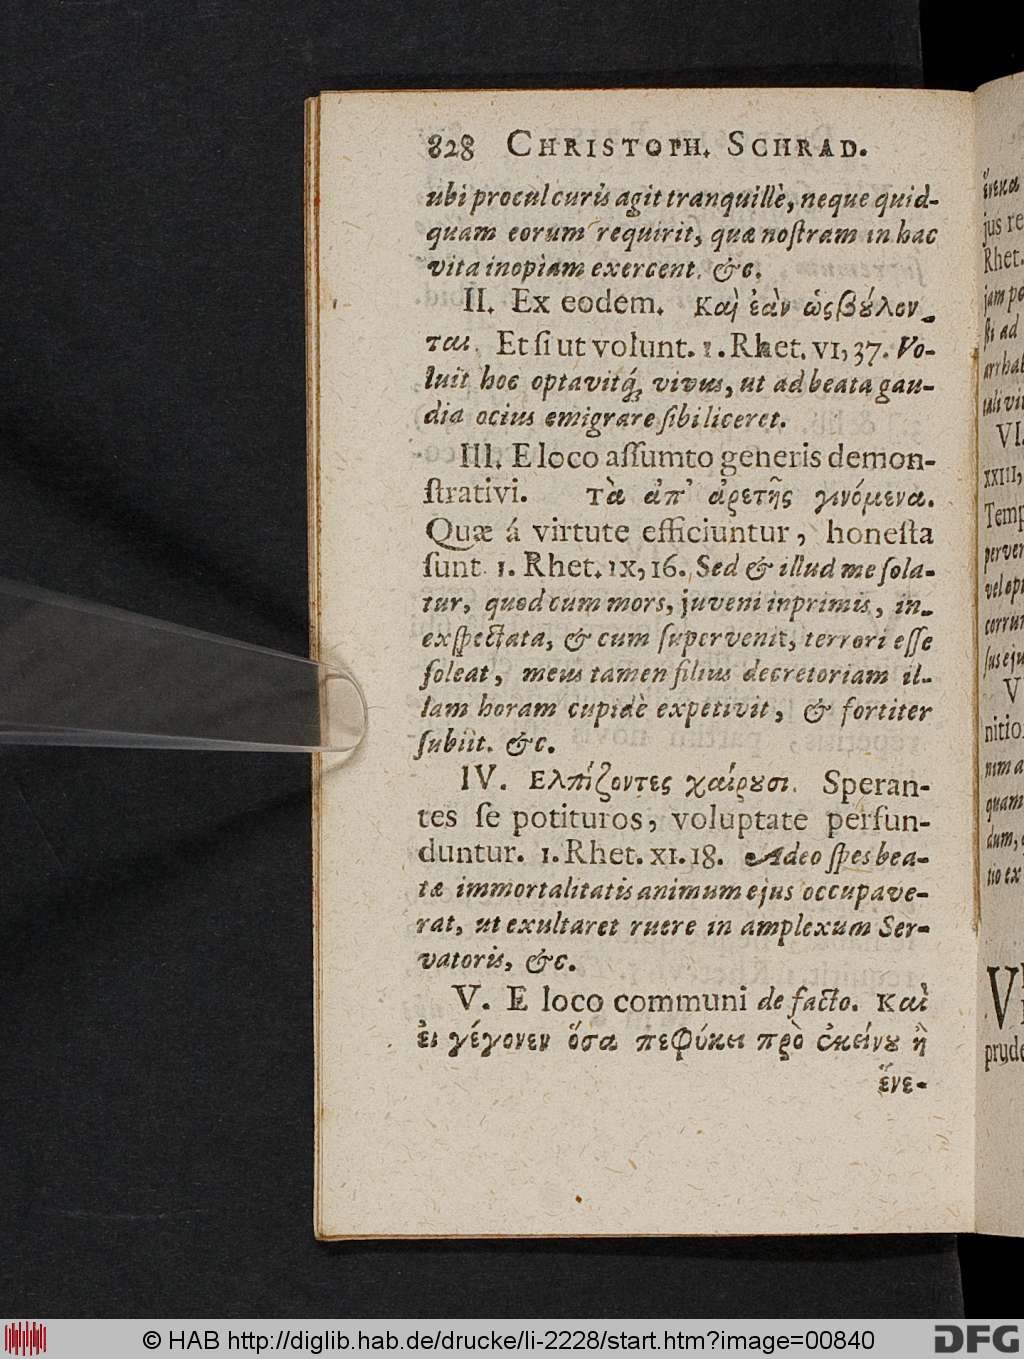 828 CHRISTOPH. SCHRAD.
ubi procul curis agit tranquillè, neque quid-
quam eorum requirit, quæ noſtram in hac
vita inopiam exercent. &c.
II. Ex eodem. Καὶ ἐὰν ὡς βούλον-
ται. Et ſi ut volunt. 1. Rhet. VI, 37. Vo-
luit hoc optavitq́; vivus, ut ad beata gau-
dia ocius emigrare ſibi liceret.
III. E loco aſſumto generis demon-
ſtrativi. Τὰ ἀπ' ἀρετῆς γινόμενα.
Quæ á virtute efficiuntur, honeſta
ſunt 1. Rhet. IX, 16. Sed & illud me ſola-
tur, quod cum mors, juveni inprimis, in-
exſpectata, & cum ſupervenit, terrori eſſe
ſoleat, meus tamen filius decretoriam il-
lam horam cupidè expetivit, & fortiter
ſubiit. &c.
IV. Ελπίζοντες χαίρουσι. Speran-
tes ſe potituros, voluptate perfun-
duntur. 1. Rhet. XI. 18. Adeo ſpes bea-
tæ immortalitatis animum ejus occupave-
rat, ut exultaret ruere in amplexum Ser-
vatoris, &c.
V. E loco communi de facto. Καὶ
ἐι γέγονεν ὅσα πεφύκει πρὸ ἐκείνου ἢ
ἕνε-
ἕνεκα
jus re
Rhet.
jam po
ſti ad
arrhab
tali vit
VI.
XXIII,
Temp
perver
vel opt
corrum
ſus eju
V
nitio
nim a
quam
dum,
tio ex
V
prude
© HAB http://diglib.hab.de/drucke/li-2228/start.htm?image=00840
DFG